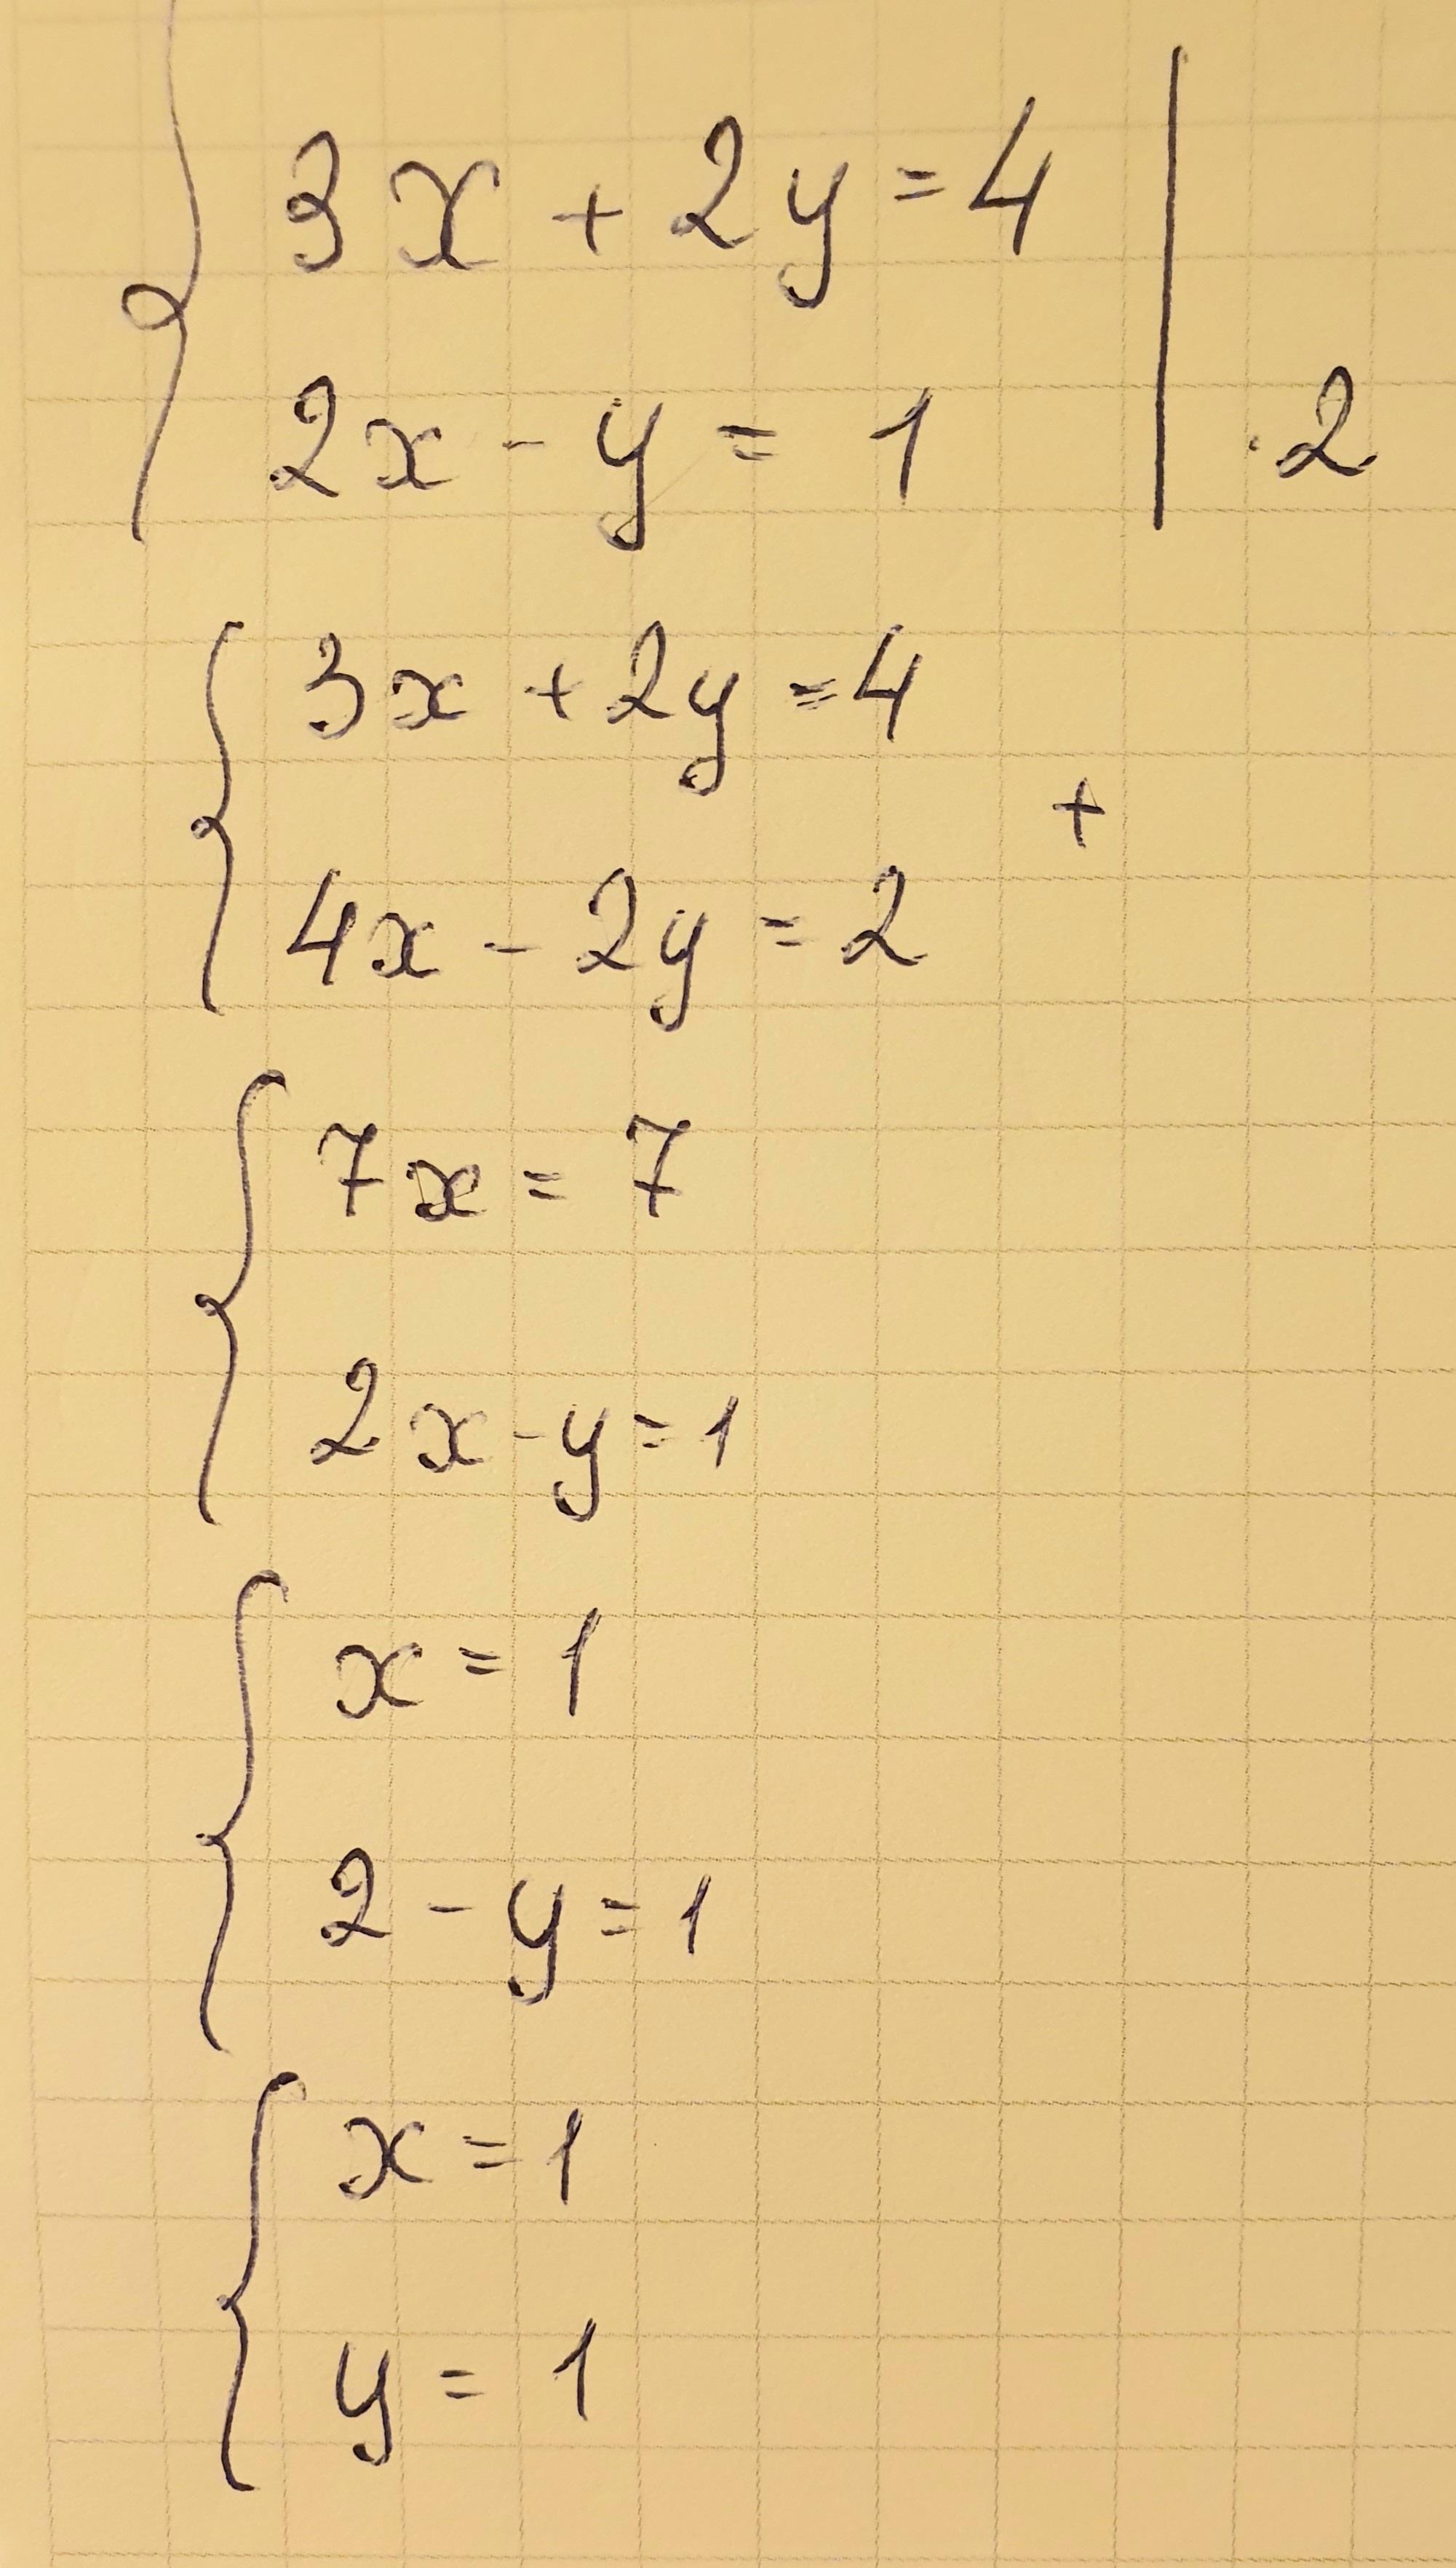 3x + 2y = 4
2x - y = 1 | · 2
3x + 2y = 4
+
4x - 2y = 2
7x = 7
2x - y = 1
x = 1
2 - y = 1
x = 1
y = 1